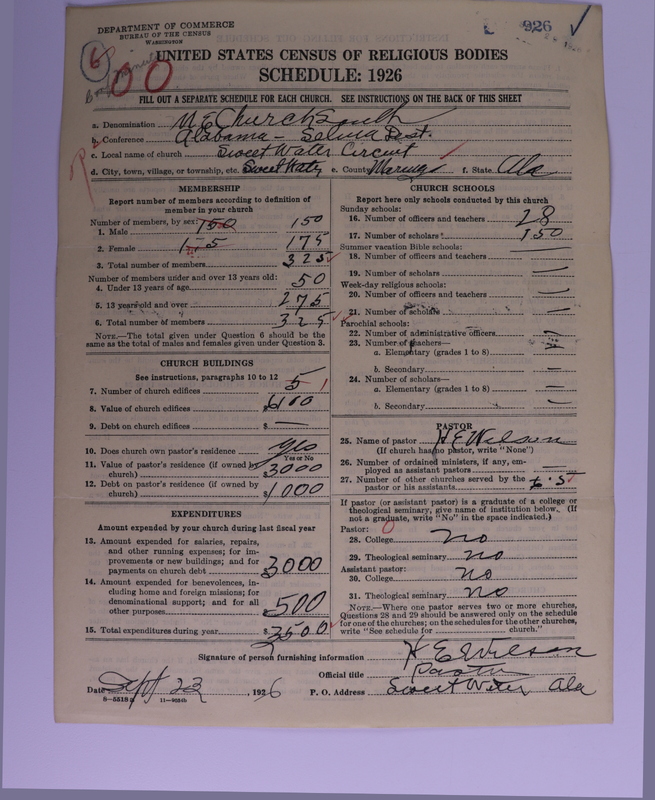 DEPARTMENT OF COMMERCE
BUREAU OF THE CENSUS
WASHINGTON
926
6
00
UNITED STATES CENSUS OF RELIGIOUS BODIES
SCHEDULE: 1926
FILL OUT A SEPARATE SCHEDULE FOR EACH CHURCH. SEE INSTRUCTIONS ON THE BACK OF THIS SHEET
a. Denomination M E Church South
b. Conference Alabama - Selma Dist.
c. Local name of church Sweet Water Circuit
d. City, town, village, or township, etc. Sweet Water e. County Marengo f. State Ala
MEMBERSHIP
Report number of members according to definition of
member in your church
Number of members, by sex:
1. Male 150 150
2. Female 175 175
3. Total number of members 325
Number of members under and over 13 years old:
4. Under 13 years of age 50
5. 13 years old and over 275
6. Total number of members 325
NOTE.—The total given under Question 6 should be the
same as the total of males and females given under Question 3.
CHURCH BUILDINGS
See instructions, paragraphs 10 to 12
7. Number of church edifices 5 1
8. Value of church edifices $6100
9. Debt on church edifices $ —
10. Does church own pastor's residence Yes
Yes or No
11. Value of pastor's residence (if owned by
church) $3000
12. Debt on pastor's residence (if owned by
church) $1000
EXPENDITURES
Amount expended by your church during last fiscal year
13. Amount expended for salaries, repairs,
and other running expenses; for im-
provements or new buildings; and for
payments on church debt 3000
14. Amount expended for benevolences, in-
cluding home and foreign missions; for
denominational support; and for all
other purposes 500
15. Total expenditures during year $3500
CHURCH SCHOOLS
Report here only schools conducted by this church
Sunday schools:
16. Number of officers and teachers 28
17. Number of scholars 150
Summer vacation Bible schools:
18. Number of officers and teachers —
19. Number of scholars —
Week-day religious schools:
20. Number of officers and teachers —
21. Number of scholars —
Parochial schools:
22. Number of administrative officers
23. Number of teachers—
a. Elementary (grades 1 to 8)
b. Secondary —
24. Number of scholars—
a. Elementary (grades 1 to 8) —
b. Secondary —
PASTOR
25. Name of pastor H E Wilson
(If church has no pastor, write "None")
26. Number of ordained ministers, if any, em-
ployed as assistant pastors —
27. Number of other churches served by the
pastor or his assistants 5
If pastor (or assistant pastor) is a graduate of a college or
theological seminary, give name of institution below. (If
not a graduate, write "No" in the space indicated.)
Pastor: 0
28. College no
29. Theological seminary no
Assistant pastor:
30. College no
31. Theological seminary no
NOTE.—Where one pastor serves two or more churches,
Questions 28 and 29 should be answered only on the schedule
for one of the churches; on the schedules for the other churches,
write "See schedule for church."
Signature of person furnishing information H E Wilson
Official title Pastor
Date Sept 23, 1926 P. O. Address Sweet Water Ala
8—5518a 11—9034b